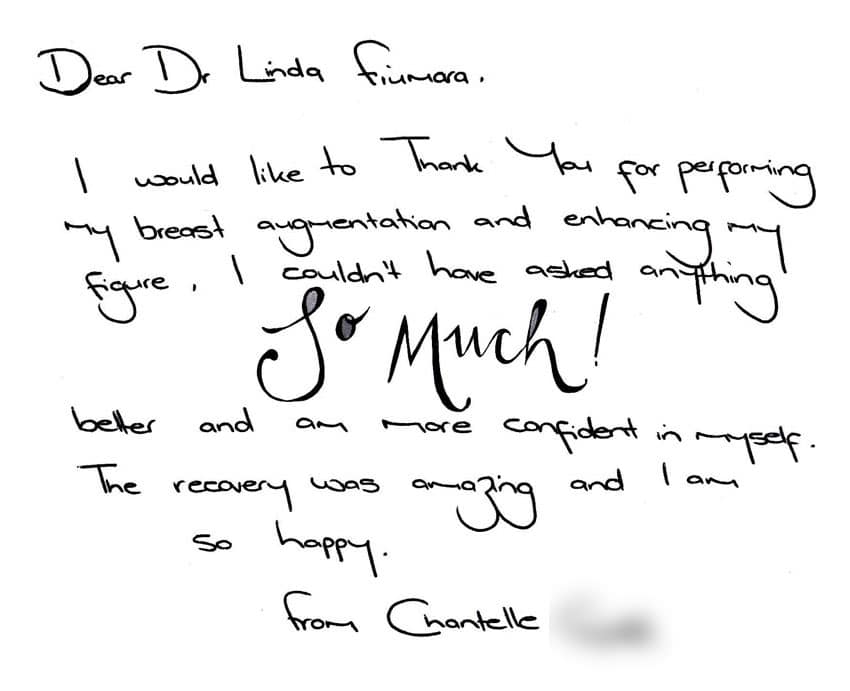 Dear Dr Linda Fiumara.
I would like to Thank You for performing
my breast augmentation and enhancing my
figure, I couldn't have asked anything
So Much!
better and am more confident in myself.
The recovery was amazing and I am
so happy.
from Chantelle